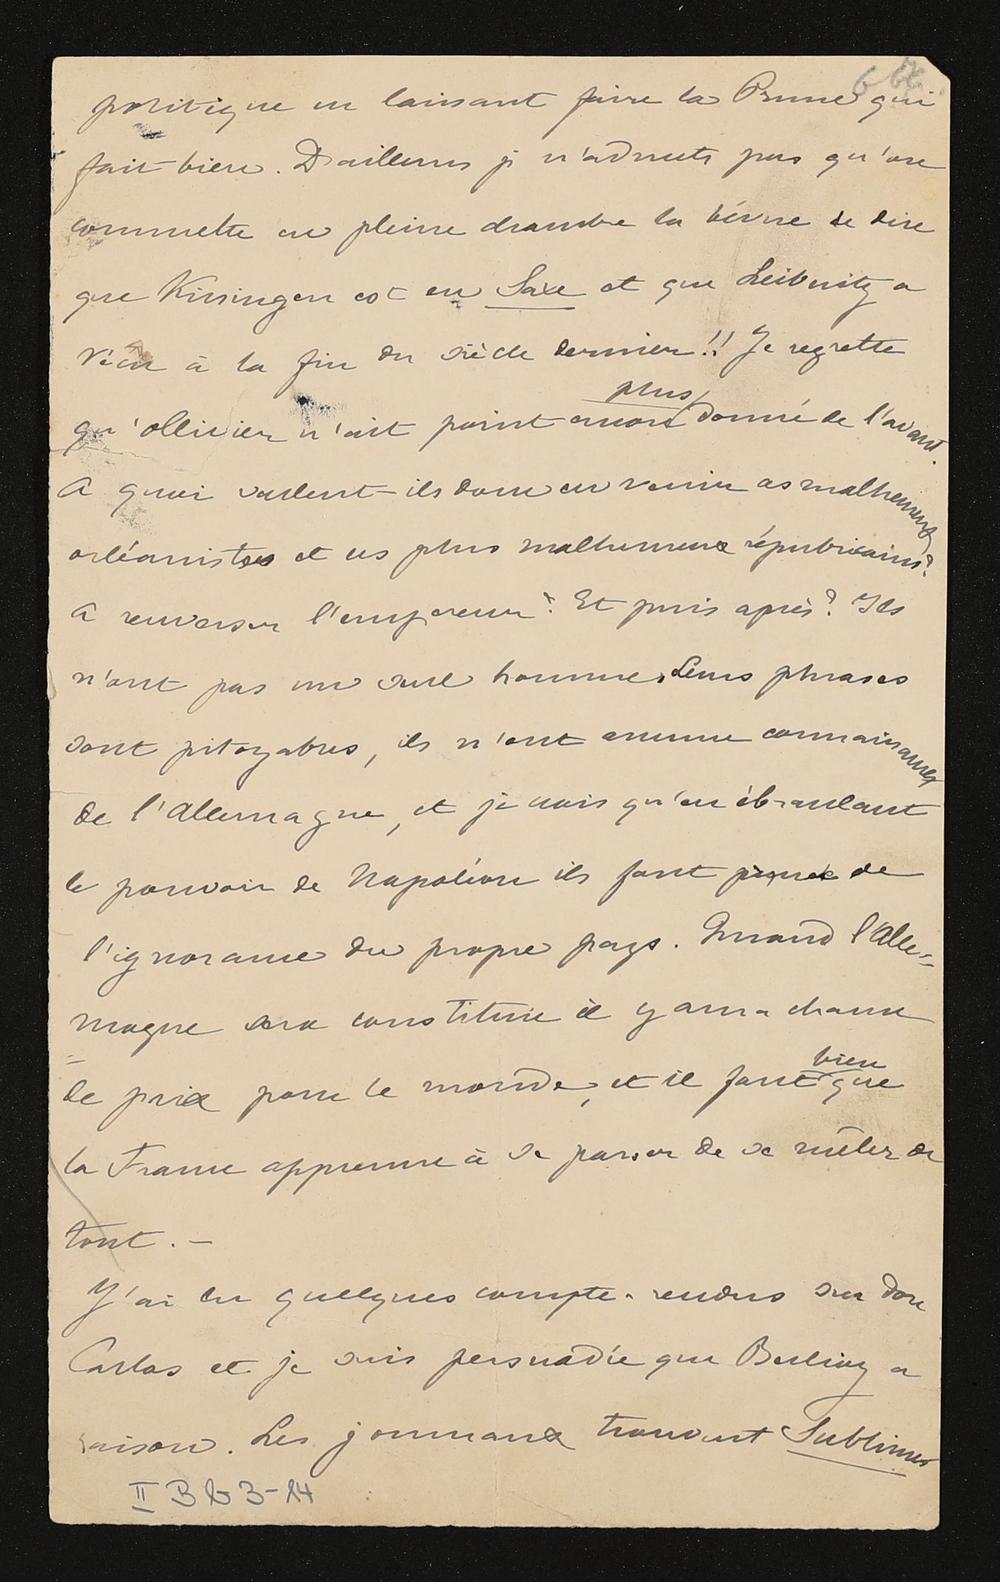 politique en laissant faire la Prusse qui
fait bien. D'ailleurs je n'admets pas qu'on
commette en pleine chambre la bévue de dire
que Kissingen est en Saxe et que Leibnitz a
vécu à la fin du siècle dernier!! Je regrette
qu'Ollivier n'ait point encore plus donné de l'avant.
A quoi veulent-ils donc en venir ces malheureux
orléanistes et ces plus malheureux républicains?
A renverser l'empereur? Et puis après? Ils
n'ont pas un seul homme. Leurs phrases
sont pitoyables, ils n'ont aucune connaissance
de l'Allemagne, et je crois qu'en ébranlant
le pouvoir de Napoléon ils font preuve de
l'ignorance du propre pays. Quand l'Alle-
magne sera constituée il y aura chance
de paix pour le monde, et il faut bien que
la France apprenne à se passer de se mêler de
tout. –
J'ai lu quelques compte-rendus sur don
Carlos et je suis persuadée que Berlioz a
raison. Les journaux trouvent Sublimes
II B b 3-14